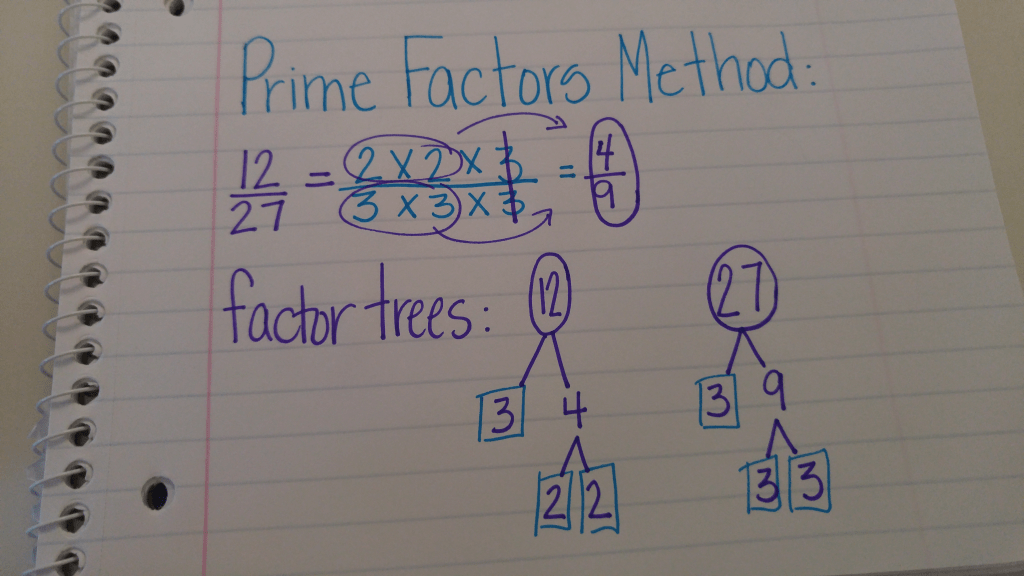 Prime Factors Method:
12/27 = 2 X 2 X 3/3 X 3 X 3 = 4/9
factor trees: 12 27
3 4 3 9
2 2 3 3